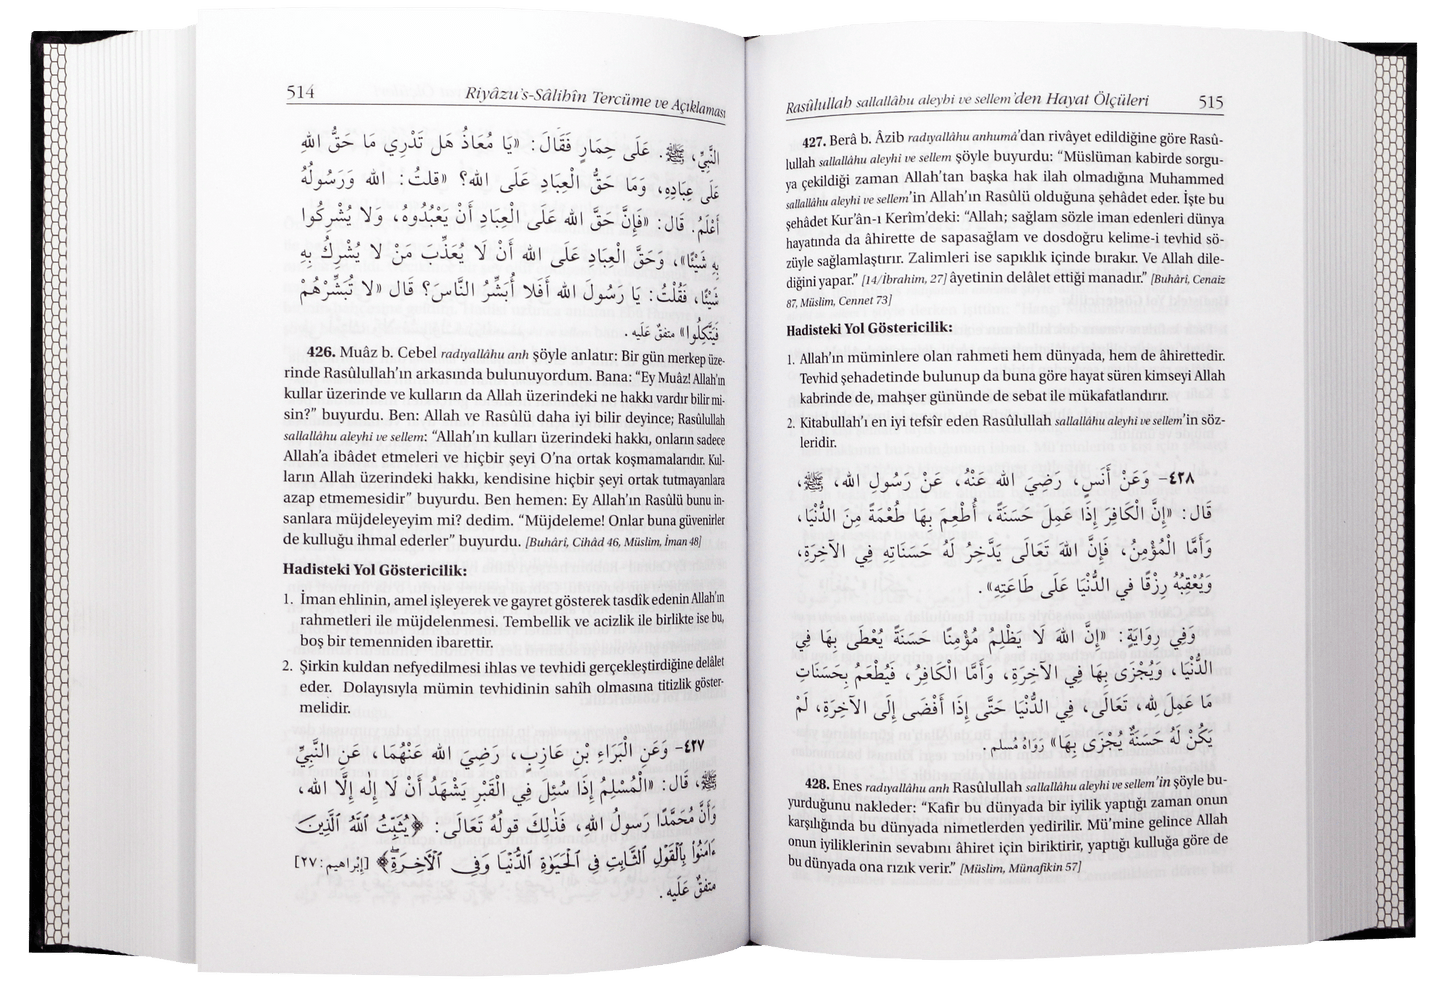 514 Riyâzu's-Sâlihîn Tercüme ve Açıklaması
النَّبِيِّ، ﷺ. عَلَى حِمَارٍ فَقَالَ: «يَا مُعَاذُ هَل تَدْرِي مَا حَقُّ اللهِ
عَلَى عِبَادِهِ، وَمَا حَقُّ الْعِبَادِ عَلَى الله؟ «قلتُ: الله وَرَسُولُهُ
أَعْلَمُ. قال: «فَإِنَّ حَقَّ الله عَلَى الْعِبَادِ أَنْ يَعْبُدُوهُ، وَلا يُشْرِكُوا
بِهِ شَيْئًا»، وَحَقَّ الْعِبَادِ عَلَى الله أَنْ لَا يُعَذِّبَ مَنْ لا يُشْرِكُ بِهِ
شَيْئًا، فَقُلْتُ: يَا رَسُولَ الله أَفَلا أُبَشِّرُ النَّاسَ؟ قال «لا تُبَشِّرْهُمْ
فَيَتَّكِلُوا» متفقٌ عَلَيه .
426. Muâz b. Cebel radıyallâhu anh şöyle anlatır: Bir gün merkep üze-
rinde Rasûlullah'ın arkasında bulunuyordum. Bana: “Ey Muâz! Allah'ın
kullar üzerinde ve kulların da Allah üzerindeki ne hakkı vardır bilir mi-
sin?” buyurdu. Ben: Allah ve Rasûlü daha iyi bilir deyince; Rasûlullah
sallallâhu aleyhi ve sellem: “Allah'ın kulları üzerindeki hakkı, onların sadece
Allah'a ibâdet etmeleri ve hiçbir şeyi O'na ortak koşmamalarıdır. Kul-
ların Allah üzerindeki hakkı, kendisine hiçbir şeyi ortak tutmayanlara
azap etmemesidir” buyurdu. Ben hemen: Ey Allah'ın Rasûlü bunu in-
sanlara müjdeleyeyim mi? dedim. “Müjdeleme! Onlar buna güvenirler
de kulluğu ihmal ederler” buyurdu. [Buhâri, Cihâd 46, Müslim, İman 48]
Hadisteki Yol Göstericilik:
1. İman ehlinin, amel işleyerek ve gayret gösterek tasdîk edenin Allah'ın
rahmetleri ile müjdelenmesi. Tembellik ve acizlik ile birlikte ise bu,
boş bir temenniden ibarettir.
2. Şirkin kuldan nefyedilmesi ihlas ve tevhidi gerçekleştirdiğine delâlet
eder. Dolayısıyla mümin tevhidinin sahîh olmasına titizlik göster-
melidir.
٤٢٧- وَعَنِ الْبَرَاءِ بْنِ عَازِبٍ، رَضِيَ الله عَنْهُمَا، عَنِ النَّبِيِّ
ﷺ، قال: «الْمُسْلِمُ إِذَا سُئِلَ فِي الْقَبْرِ يَشْهَدُ أَنْ لَا إِلٰهَ إِلَّا الله،
وَأَنَّ مُحَمَّدًا رَسولُ اللهِ، فَذٰلِكَ قولُهُ تَعَالَى: ﴿يُثَبِّتُ ٱللَّهُ ٱلَّذِينَ
ءَامَنُواْ بِٱلْقَوْلِ ٱلثَّابِتِ فِى ٱلْحَيَوٰةِ ٱلدُّنْيَا وَفِى ٱلْءَاخِرَةِ﴾ [إبْرَاهيم: ٢٧]
متفقٌ عَلَيه .
Rasûlullah sallallâhu aleyhi ve sellem'den Hayat Ölçüleri 515
427. Berâ b. Âzib radıyallâhu anhumâ'dan rivâyet edildiğine göre Rasû-
lullah sallallâhu aleyhi ve sellem şöyle buyurdu: “Müslüman kabirde sorgu-
ya çekildiği zaman Allah'tan başka hak ilah olmadığına Muhammed
sallallâhu aleyhi ve sellem'in Allah'ın Rasûlü olduğuna şehâdet eder. İşte bu
şehâdet Kur'ân-ı Kerîm'deki: “Allah; sağlam sözle iman edenleri dünya
hayatında da âhirette de sapasağlam ve dosdoğru kelime-i tevhid sö-
züyle sağlamlaştırır. Zalimleri ise sapıklık içinde bırakır. Ve Allah dile-
diğini yapar.” [14/İbrahim, 27] âyetinin delâlet ettiği manadır.” [Buhâri, Cenaiz
87, Müslim, Cennet 73]
Hadisteki Yol Göstericilik:
1. Allah'ın müminlere olan rahmeti hem dünyada, hem de âhirettedir.
Tevhid şehadetinde bulunup da buna göre hayat süren kimseyi Allah
kabrinde de, mahşer gününde de sebat ile mükafatlandırır.
2. Kitabullah'ı en iyi tefsîr eden Rasûlullah sallallâhu aleyhi ve sellem'in söz-
leridir.
٤٢٨- وَعَنْ أَنَسٍ، رَضِيَ الله عَنْهُ، عَنْ رَسُولِ الله، ﷺ،
قَال: «إِنَّ الْكَافِرَ إِذَا عَمِلَ حَسَنَةً، أُطْعِمَ بِهَا طُعْمَةً مِنَ الدُّنْيَا،
وَأَمَّا الْمُؤْمِنُ، فَإِنَّ اللهَ تَعَالَى يَدَّخِرُ لَهُ حَسَنَاتِهِ فِي الآخِرَةِ،
وَيُعْقِبُهُ رِزْقًا في الدُّنْيَا عَلَى طَاعَتِهِ» .
وَفِي رِوَايَةٍ: «إِنَّ اللهَ لَا يَظْلِمُ مُؤْمِنًا حَسَنَةً يُعْطَى بِهَا فِي
الدُّنْيَا، وَيُجْزَى بِهَا فِي الآخِرَةِ، وَأَمَّا الْكَافِرُ، فَيُطْعَمُ بِحَسَنَاتِ
مَا عَمِلَ لِله، تَعَالَى، فِي الدُّنْيَا حَتَّى إِذَا أَفْضَى إِلَى الآخِرَةِ، لَمْ
يَكُنْ لَهُ حَسَنَةٌ يُجْزَى بِهَا» رَوَاهُ مُسلم .
428. Enes radıyallâhu anh Rasûlullah sallallâhu aleyhi ve sellem'in şöyle bu-
yurduğunu nakleder: “Kafir bu dünyada bir iyilik yaptığı zaman onun
karşılığında bu dünyada nimetlerden yedirilir. Mü'mine gelince Allah
onun iyiliklerinin sevabını âhiret için biriktirir, yaptığı kulluğa göre de
bu dünyada ona rızık verir.” [Müslim, Münafikin 57]